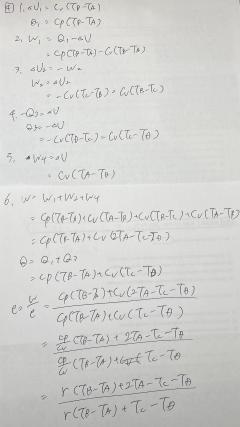 ④ 1. ΔU₁ = Cv(TB-TA)
Q₁ = Cp(TB-TA)
2. W₁ = Q₁-ΔU
= Cp(TB-TA)-Cv(TB-TA)
3. ΔU₂ = -W₂
W₂ = -ΔU₂
= -Cv(TC-TB) = Cv(TB-TC)
4. -Q₃ = ΔU
Q₃ = -ΔU
= -Cv(TD-TC) = Cv(TC-TD)
5. W₄ = ΔU
= Cv(TA-TD)
6. W = W₁+W₂+W₄
= Cp(TB-TA)+Cv(TA-TB)+Cv(TB-TC)+Cv(TA-TD)
= Cp(TB-TA)+Cv(2TA-TC-TD)
Q = Q₁+Q₃
= Cp(TB-TA)+Cv(TC-TD)
e = W/Q = Cp(TB-TA)+Cv(2TA-TC-TD) / Cp(TB-TA)+Cv(TC-TD)
= Cp/Cv (TB-TA)+2TA-TC-TD / Cp/Cv (TB-TA)+TC-TD
= r(TB-TA)+2TA-TC-TD / r(TB-TA)+TC-TD